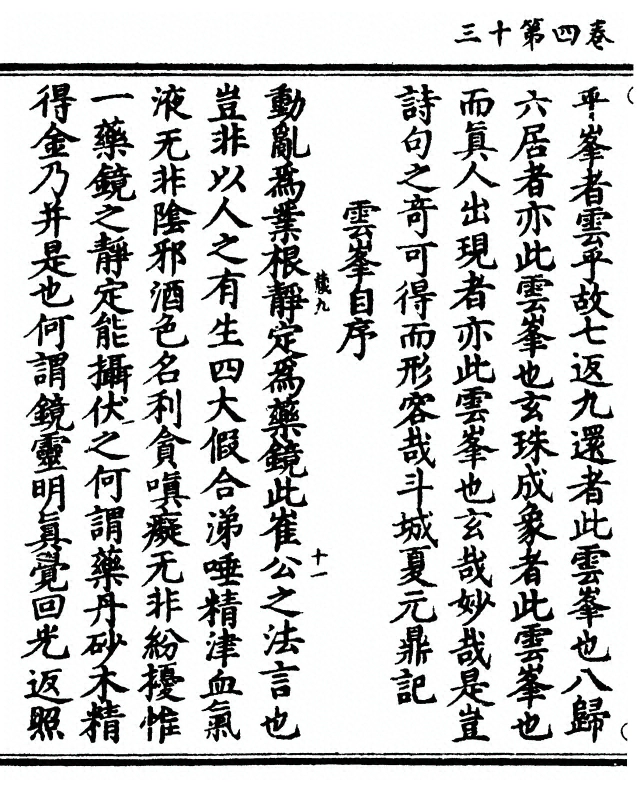 三十第四卷
平峯者雲乎故七返九還者此雲峯也八歸
六居者亦此雲峯也玄珠成象者此雲峯也
而眞人出現者亦此雲峯也玄哉妙哉是豈
詩句之竒可得而形容哉斗城夏元鼎記
雲峯自序
九
十一
動亂爲業根靜定爲藥鏡此崔公之法言也
豈非以人之有生四大假合涕唾精津血氣
液无非陰邪酒色名利貪嗔癡无非紛擾惟
一藥鏡之靜定能攝伏之何謂藥丹砂木精
得金乃并是也何謂鏡靈明眞覺回光返照